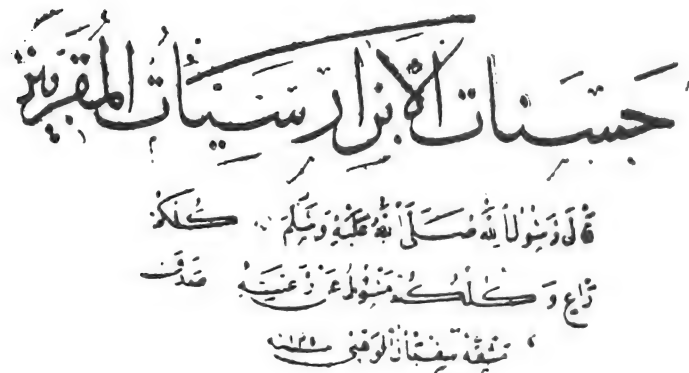 حسنات الأبرار سيئات المقربين
قال رسول الله صلى الله عليه وسلم كلكم
راع وكلكم مسئول عن رعيته صدق
مشقه سفيان الوهبي